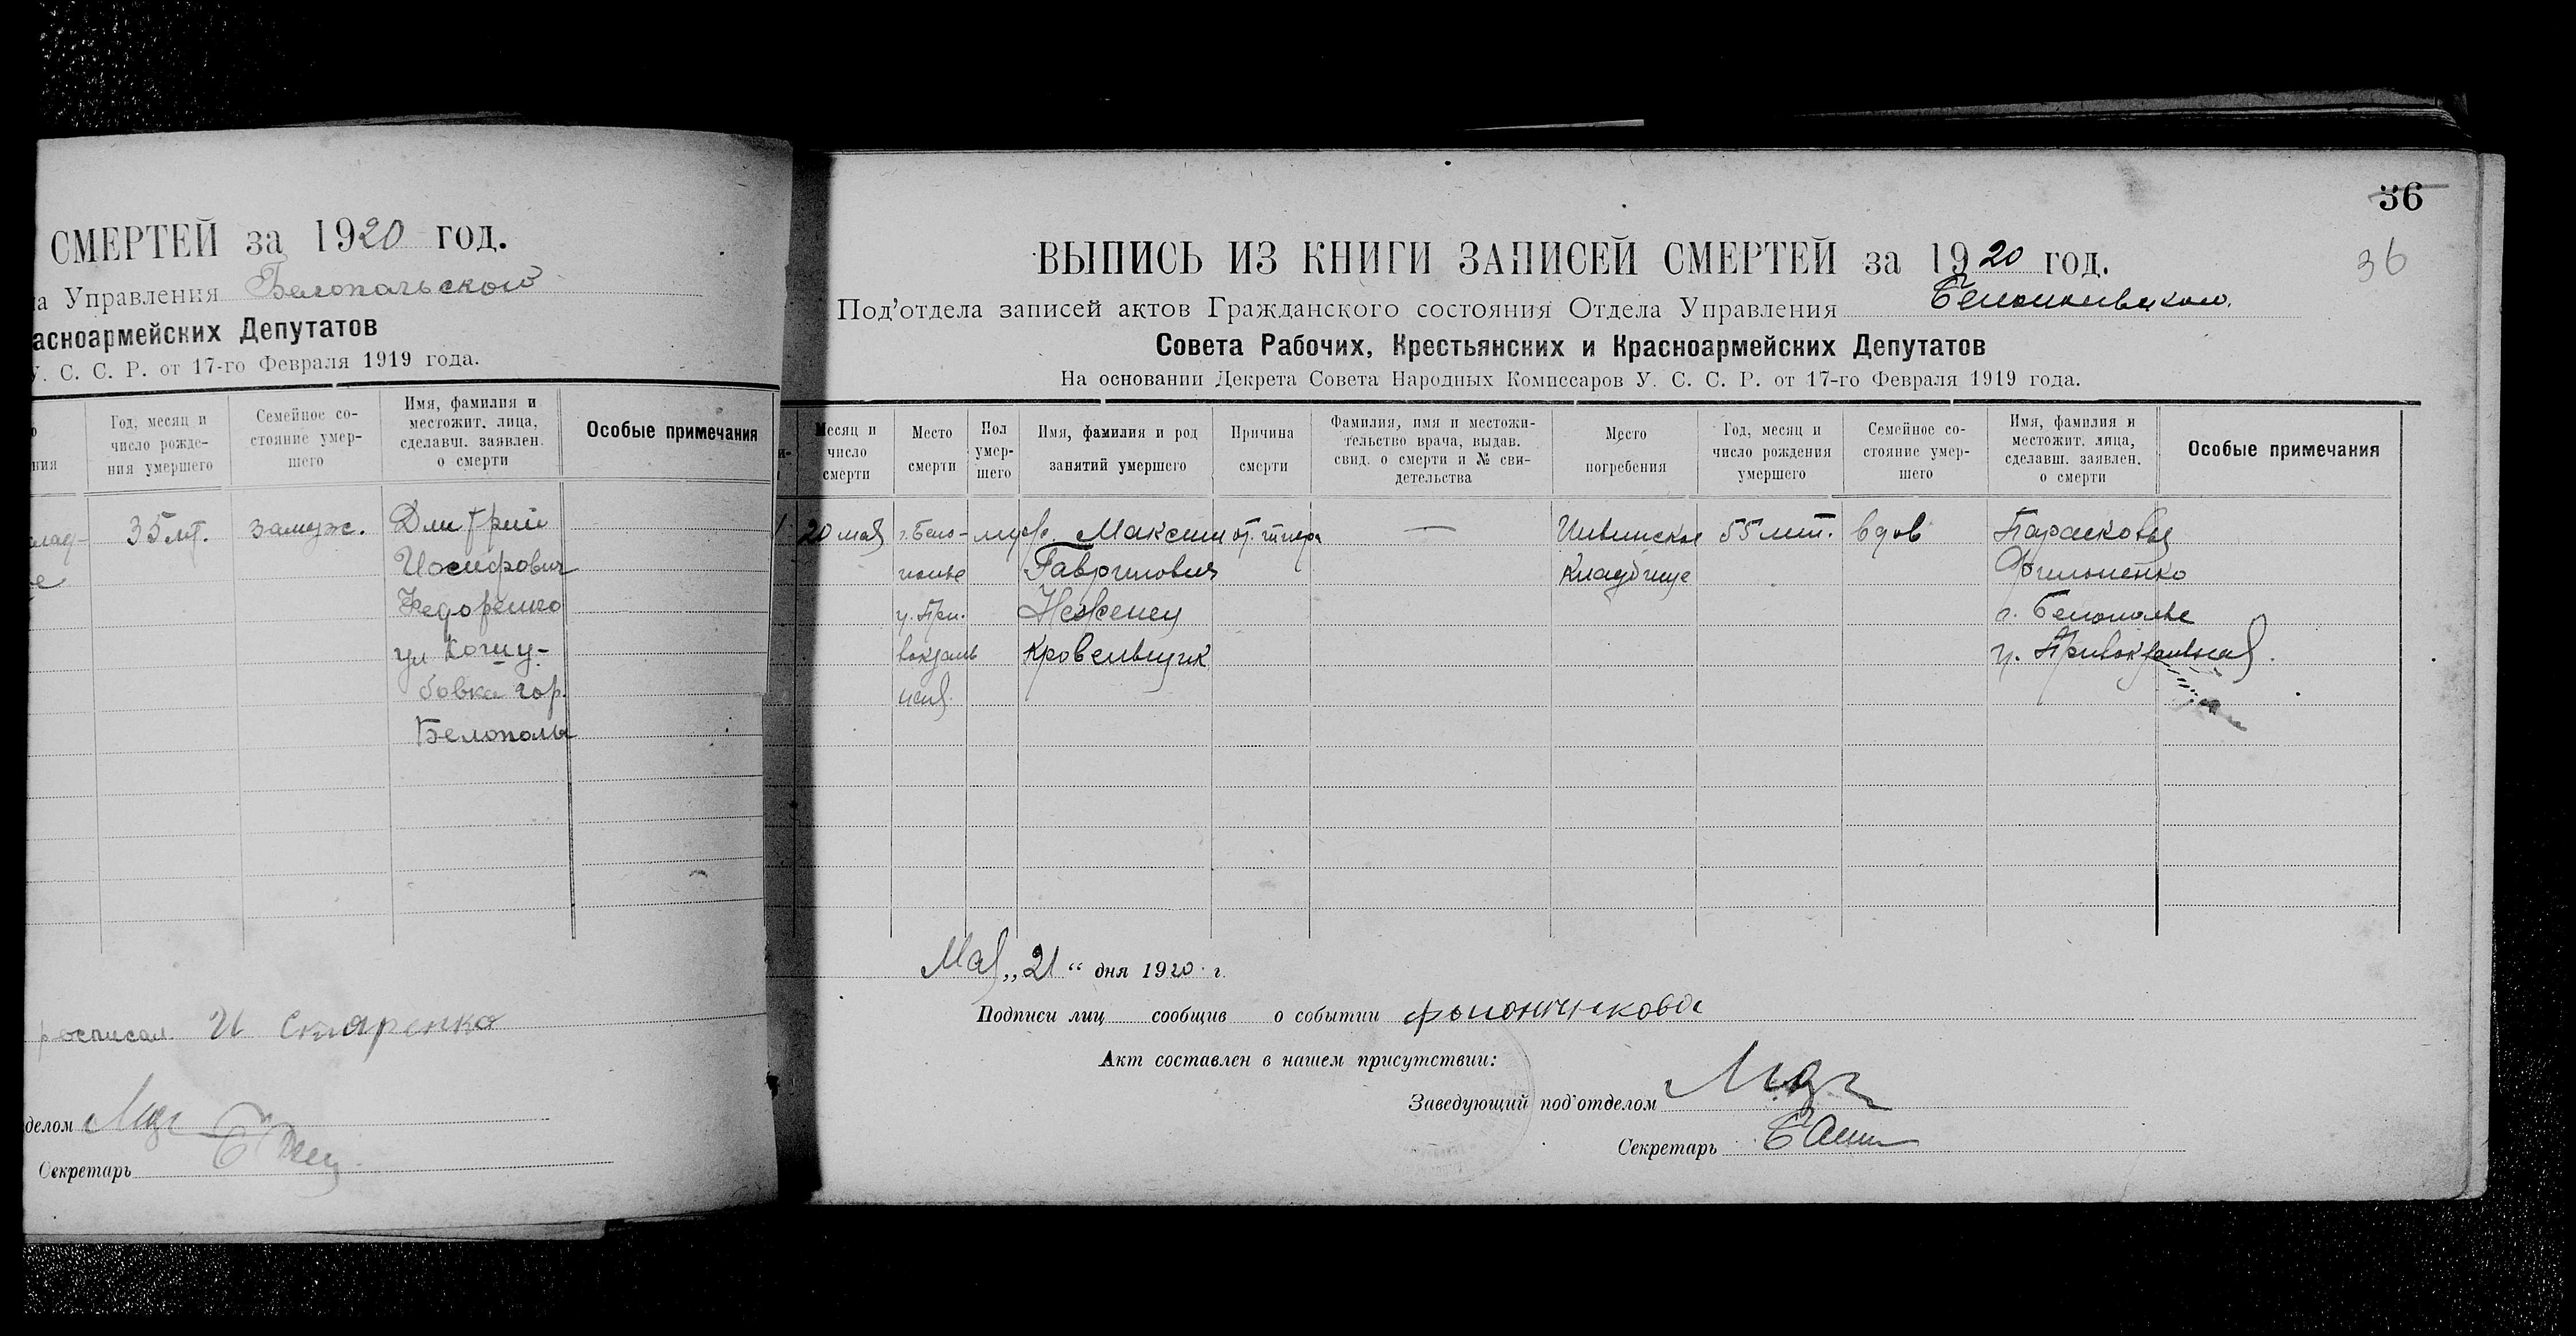 СМЕРТЕЙ за 1920 год.
а Управления Белопольского
асноармейских Депутатов
У. С. С. Р. от 17-го Февраля 1919 года.
о
ния
Год, месяц и
число рожде-
ния умершего
Семейное со-
стояние умер-
шего
Имя, фамилия и
местожит. лица,
сделавш. заявлен.
о смерти
Особые примечания
клад-
е
35 лт.
замуж.
Дмитрий
Иосифович
Федоренко
ул Кошу-
бовка гор.
Белополь
росписал И Скляренко
делом
Секретарь
36
36
ВЫПИСЬ ИЗ КНИГИ ЗАПИСЕЙ СМЕРТЕЙ за 1920 год.
Под'отдела записей актов Гражданского состояния Отдела Управления Белопольского.
Совета Рабочих, Крестьянских и Красноармейских Депутатов
На основании Декрета Совета Народных Комиссаров У. С. С. Р. от 17-го Февраля 1919 года.
Месяц и
число
смерти
Место
смерти
Пол
умер-
шего
Имя, фамилия и род
занятий умершего
Причина
смерти
Фамилия, имя и местожи-
тельство врача, выдав.
свид. о смерти и № сви-
детельства
Место
погребения
Год, месяц и
число рождения
умершего
Семейное со-
стояние умер-
шего
Имя, фамилия и
местожит. лица,
сделавш. заявлен.
о смерти
Особые примечания
20 мая
г. Бело-
полье
у. При.
вокзаль
ная
муж.
Максим
Гаврилович
Неженец
Кровельщик
от тифа
—
Ильинское
Кладбище
55 лет.
вдов
Парасковья
Филоненко
г. Белополье
у. Привокзальная.
Мая „21“ дня 1920 г.
Подписи лиц сообщив о событии
Акт составлен в нашем присутствии:
Заведующий под'отделом
Секретарь